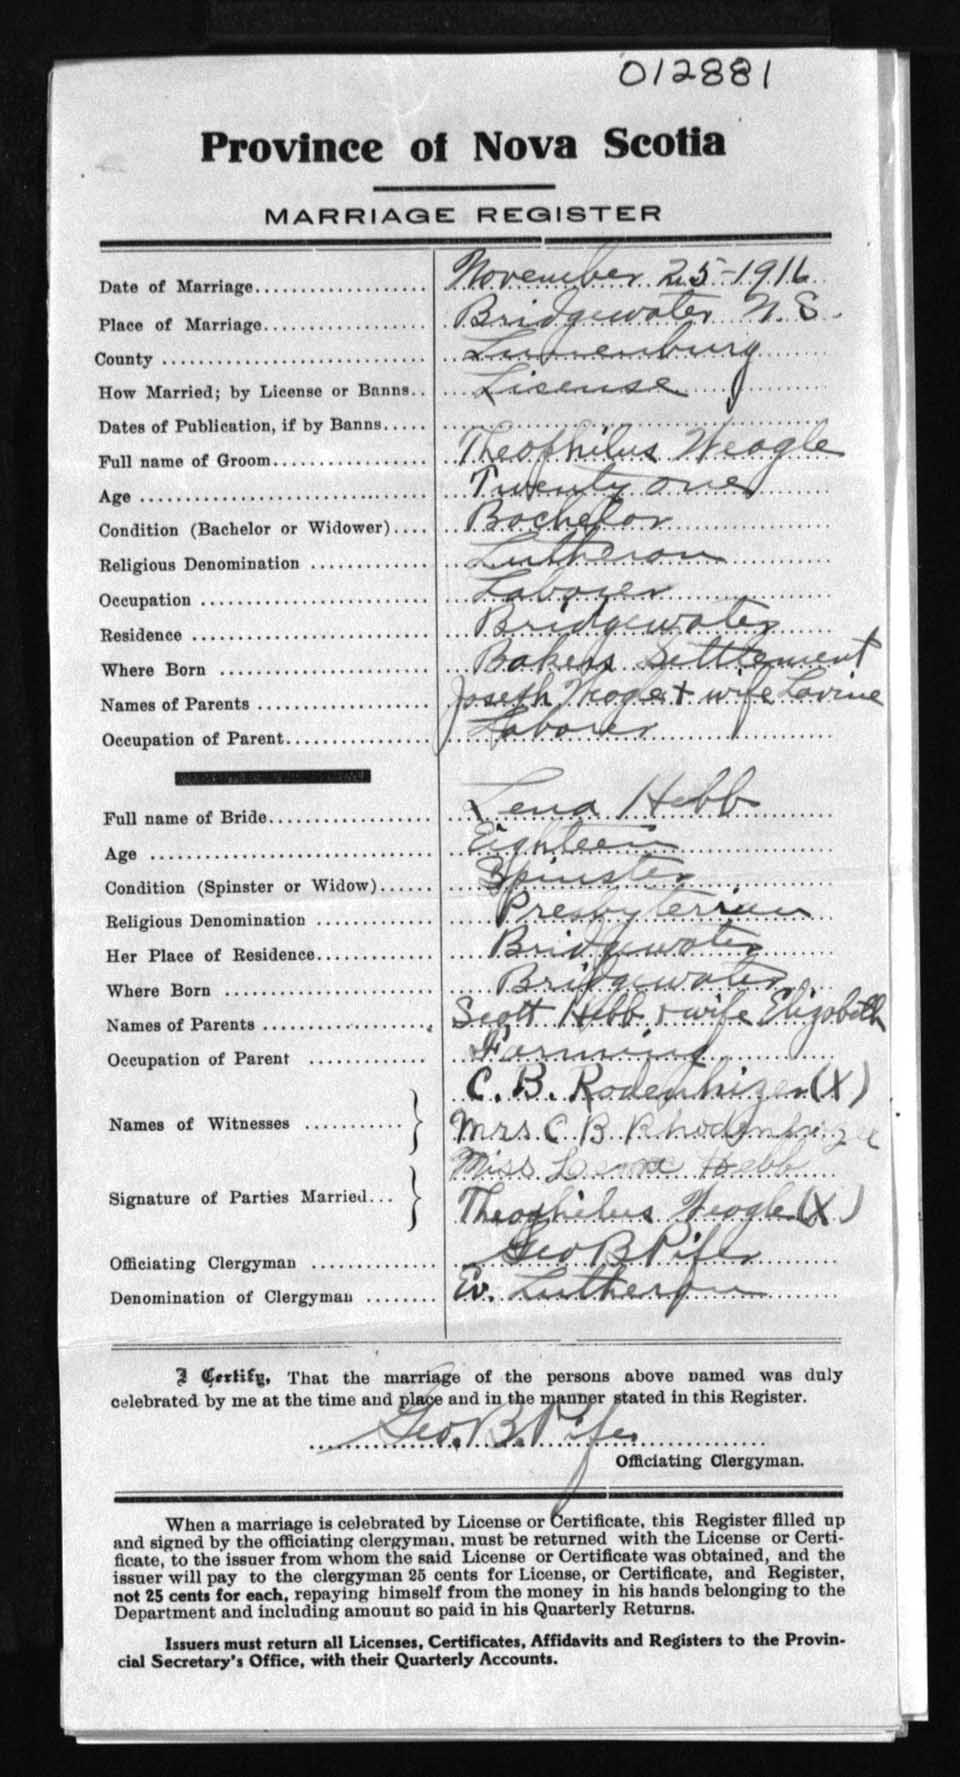 012881
Province of Nova Scotia
MARRIAGE REGISTER
Date of Marriage.................... November 25-1916
Place of Marriage................... Bridgewater N.S.
County ............................. Lunenburg
How Married; by License or Banns.. Lisense
Dates of Publication, if by Banns.....
Full name of Groom................. Theophilus Weagle
Age ............................... Twenty one
Condition (Bachelor or Widower).... Bachelor
Religious Denomination ............. Lutheran
Occupation ......................... Laborer
Residence .......................... Bridgewater
Where Born ........................ Bakers Settlement
Names of Parents ................... Joseph Weagle + wife Lavine
Occupation of Parent................ Laborer
Full name of Bride.................. Lena Hebb
Age ............................... Eighteen
Condition (Spinster or Widow)...... Spinster
Religious Denomination ............. Presbyterian
Her Place of Residence............. Bridgewater
Where Born ........................ Bridgewater
Names of Parents ................... Scott Hebb + wife Elizabeth
Occupation of Parent ............. Farming
C. B. Rodenhizer (X)
Names of Witnesses ........... } Mrs C B Rhodenhizer
Miss Hebb
Signature of Parties Married... } Theophilus Weagle (X)
Officiating Clergyman .............. Geo B Pifer
Denomination of Clergyman ........ Ev. Lutheran
I Certify, That the marriage of the persons above named was duly
celebrated by me at the time and place and in the manner stated in this Register.
Geo. B. Pifer
Officiating Clergyman.
When a marriage is celebrated by License or Certificate, this Register filled up
and signed by the officiating clergyman, must be returned with the License or Certi-
ficate, to the issuer from whom the said License or Certificate was obtained, and the
issuer will pay to the clergyman 25 cents for License, or Certificate, and Register,
not 25 cents for each, repaying himself from the money in his hands belonging to the
Department and including amount so paid in his Quarterly Returns.
Issuers must return all Licenses, Certificates, Affidavits and Registers to the Provin-
cial Secretary's Office, with their Quarterly Accounts.